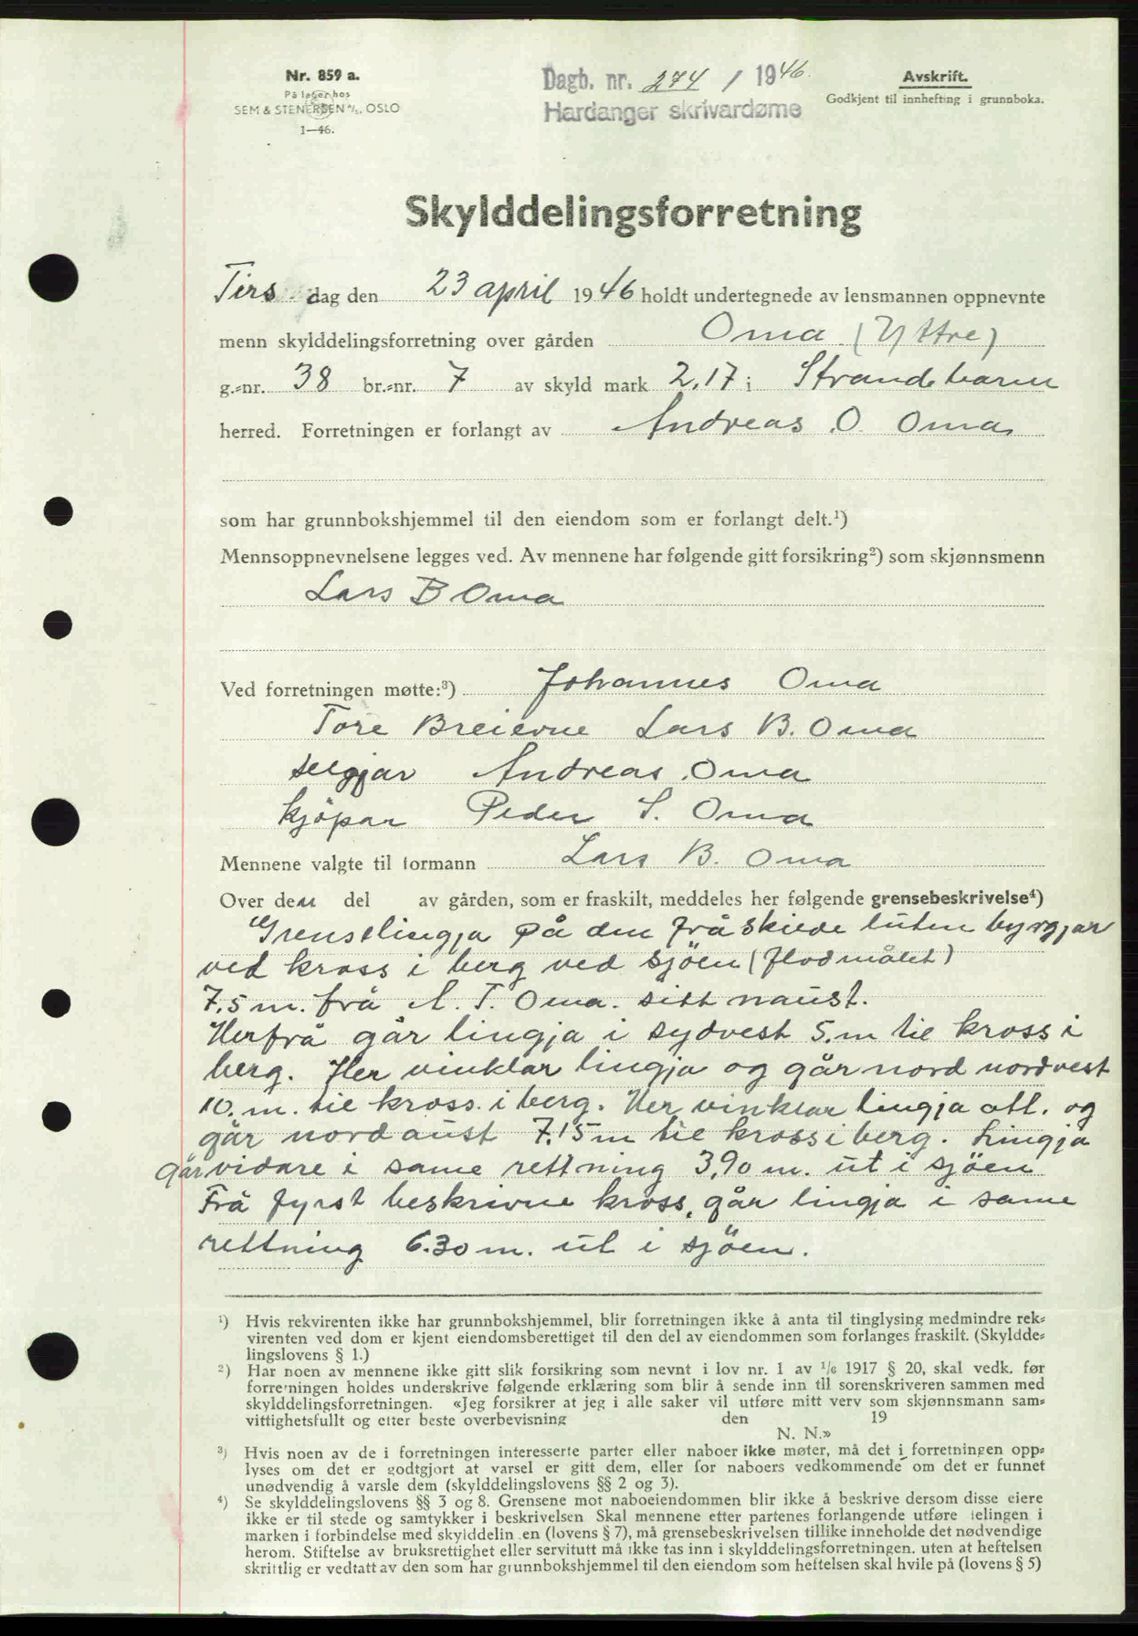 Nr. 859 a.
På lager hos
SEM & STENERSEN A/S, OSLO
1—46.
Dagb. nr. 274 / 1946.
Hardanger skrivardøme
Avskrift.
Godkjent til innhefting i grunnboka.
Skylddelingsforretning
Tirsdag den 23 april 1946 holdt undertegnede av lensmannen oppnevnte
menn skylddelingsforretning over gården Oma (Yttre)
g.-nr. 38 br.-nr. 7 av skyld mark 2,17 i Strandebarm
herred. Forretningen er forlangt av Andreas O. Oma
som har grunnbokshjemmel til den eiendom som er forlangt delt.¹)
Mennsoppnevnelsene legges ved. Av mennene har følgende gitt forsikring²) som skjønnsmenn
Lars B Oma
Ved forretningen møtte:³) Johannes Oma
Tore Breievne Lars B. Oma
selgjar Andreas Oma
kjöpar Peder S. Oma
Mennene valgte til formann Lars B. Oma
Over den del av gården, som er fraskilt, meddeles her følgende grensebeskrivelse⁴)
Grenselingja på den fråskiede luten byrgjar
ved kross i berg ved sjöen (flodmålet)
7,5 m. frå A. T. Oma. sitt naust.
Herfrå går lingja i sydvest 5.m til kross i
berg. Her vinklar lingja og går nord nordvest
10. m. til kross i berg. Her vinklar lingja att. og
går nordaust 7,15m til kross i berg. Lingja
går vidare i same rettning 3,90 m. ut i sjöen
Frå fyrst beskrivne kross, går lingja i same
rettning 6.30 m. ut i sjöen.
¹) Hvis rekvirenten ikke har grunnbokshjemmel, blir forretningen ikke å anta til tinglysing medmindre rek-
virenten ved dom er kjent eiendomsberettiget til den del av eiendommen som forlanges fraskilt. (Skyldde-
lingslovens § 1.)
²) Har noen av mennene ikke gitt slik forsikring som nevnt i lov nr. 1 av 1/6 1917 § 20, skal vedk. før
forretningen holdes underskrive følgende erklæring som blir å sende inn til sorenskriveren sammen med
skylddelingsforretningen. «Jeg forsikrer at jeg i alle saker vil utføre mitt verv som skjønnsmann sam-
vittighetsfullt og etter beste overbevisning den 19
N. N.»
³) Hvis noen av de i forretningen interesserte parter eller naboer ikke møter, må det i forretningen opp-
lyses om det er godtgjort at varsel er gitt dem, eller for naboers vedkommende om det er funnet
unødvendig å varsle dem (skylddelingslovens §§ 2 og 3).
⁴) Se skylddelingslovens §§ 3 og 8. Grensene mot naboeiendommen blir ikke å beskrive dersom disse eiere
ikke er til stede og samtykker i beskrivelsen Skal mennene etter partenes forlangende utføre delingen i
marken i forbindelse med skylddelingen (lovens § 7), må grensebeskrivelsen tillike inneholde det nødvendige
herom. Stiftelse av bruksrettighet eller servitutt må ikke tas inn i skylddelingsforretningen, uten at heftelsen
skriftlig er vedtatt av den som har grunnbokshjemmel til den eiendom som heftelsen skal hvile på (lovens § 5)